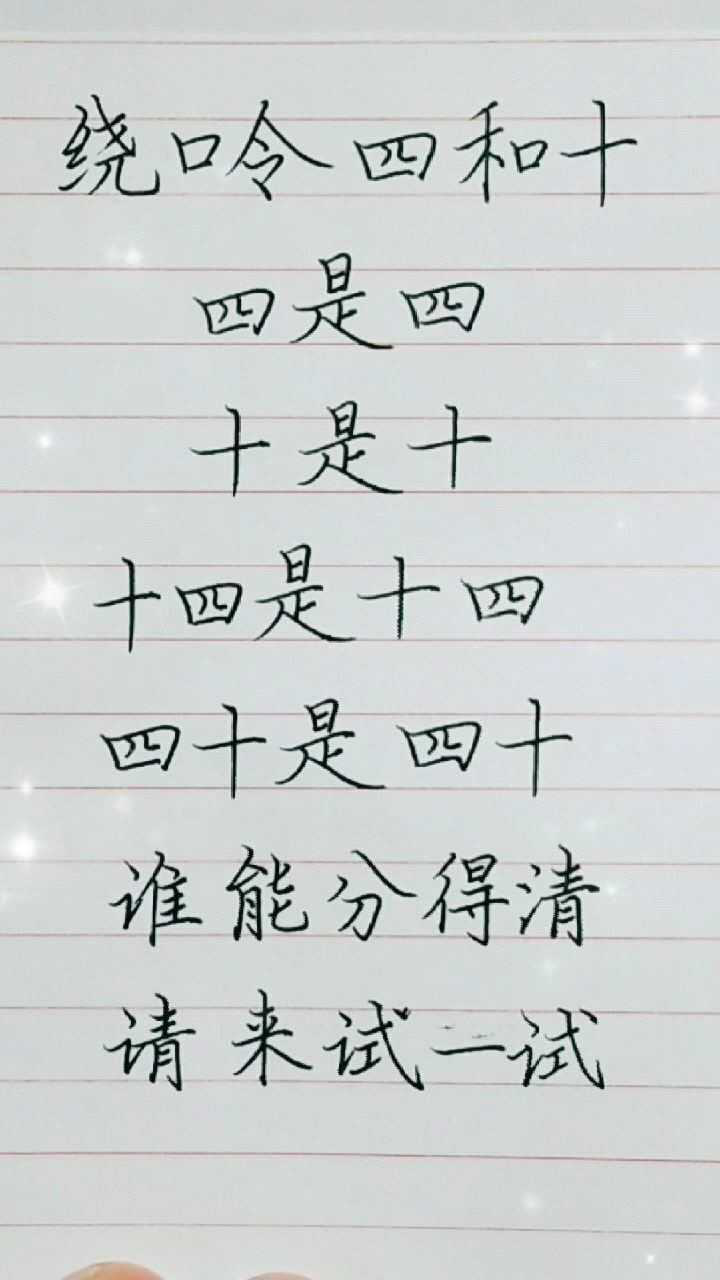 绕口呤四和十
四是四
十是十
十四是十四
四十是四十
谁能分得清
请来试一试